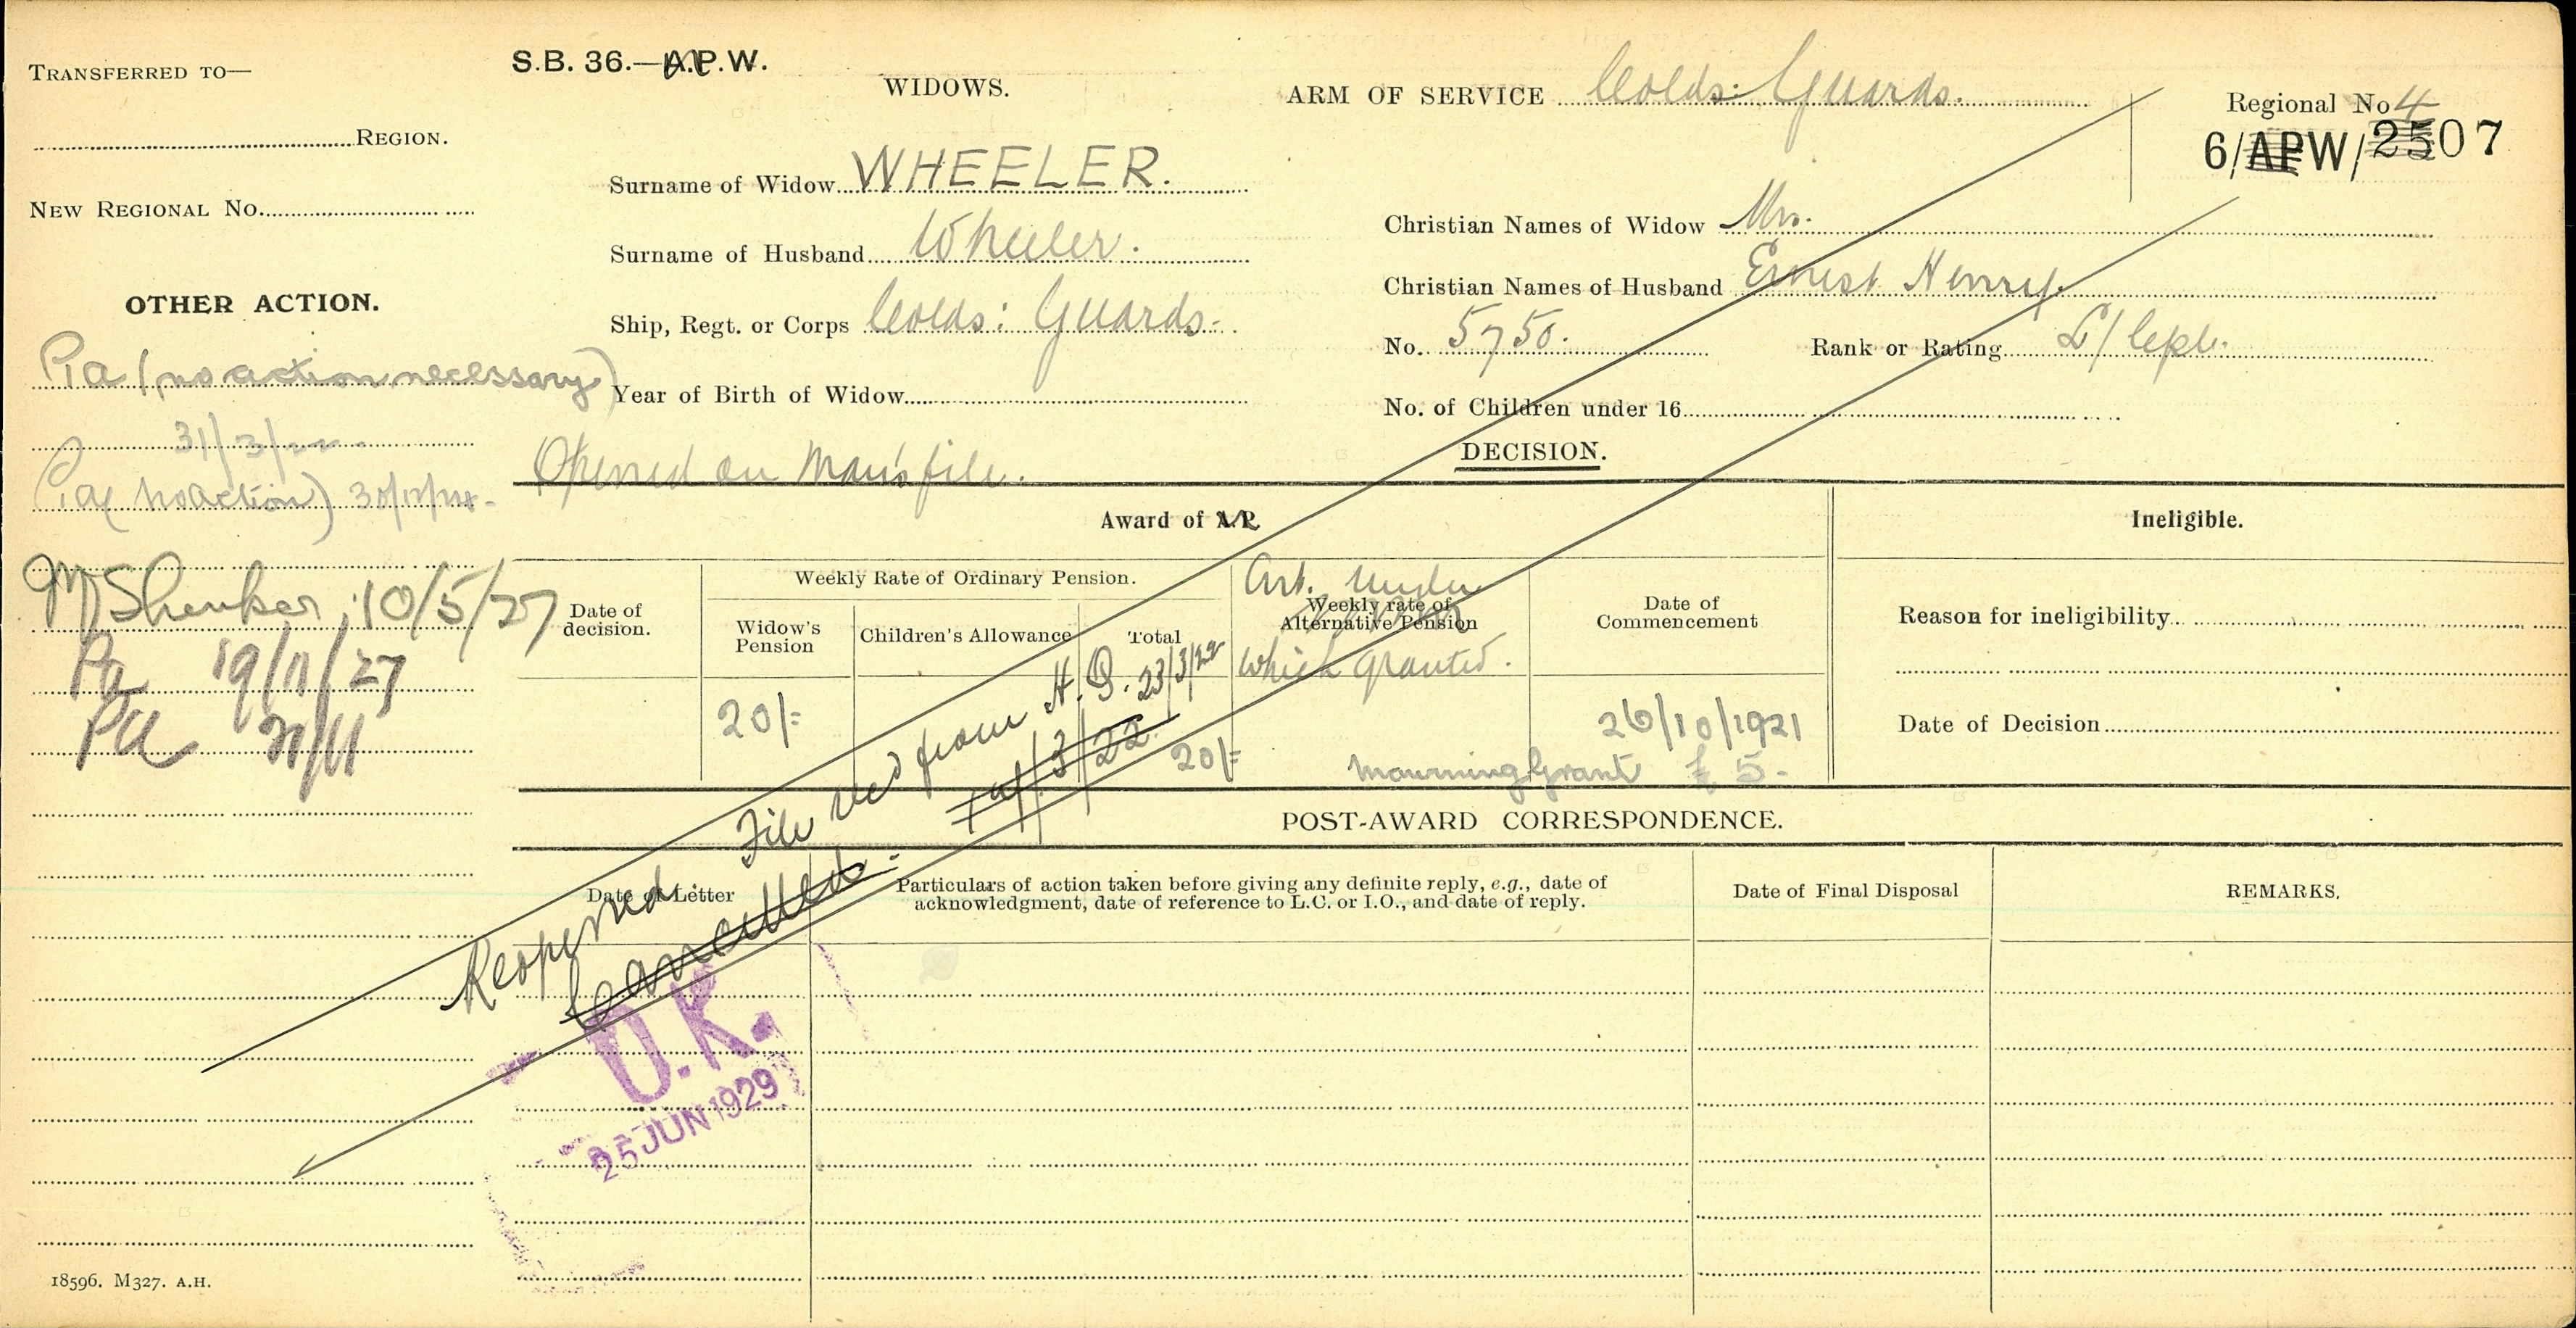 TRANSFERRED TO—
REGION.
NEW REGIONAL No.
S.B. 36.—A.P.W.
WIDOWS.
ARM OF SERVICE Colds: Guards.
Regional No 4
6/APW/2507
Surname of Widow WHEELER.
Christian Names of Widow Mrs.
Surname of Husband Wheeler.
Christian Names of Husband Ernest Henry.
Ship, Regt. or Corps Colds: Guards.
No. 5750.
Rank or Rating L/Cpl.
Year of Birth of Widow
No. of Children under 16
OTHER ACTION.
Pa (no action necessary)
31/3/22.
Pa (No action) 30/12/24.
10/5/27
Pa 19/11/27
PA
Opened on Man's file.
DECISION.
Award of A.P.
Ineligible.
Date of decision.
Weekly Rate of Ordinary Pension.
Widow's Pension
Children's Allowance
Total
Weekly rate of Alternative Pension
Art. Under
which granted.
Date of Commencement
Reason for ineligibility
Date of Decision
20/-
20/-
26/10/1921
Mourning Grant £5.-
Reopened. File rec'd from H.Q. 23/3/22
Cancelled. /3/22
POST-AWARD CORRESPONDENCE.
Date of Letter
Particulars of action taken before giving any definite reply, e.g., date of
acknowledgment, date of reference to L.C. or I.O., and date of reply.
Date of Final Disposal
REMARKS.
O.K.
25 JUN 1929
18596. M327. A.H.